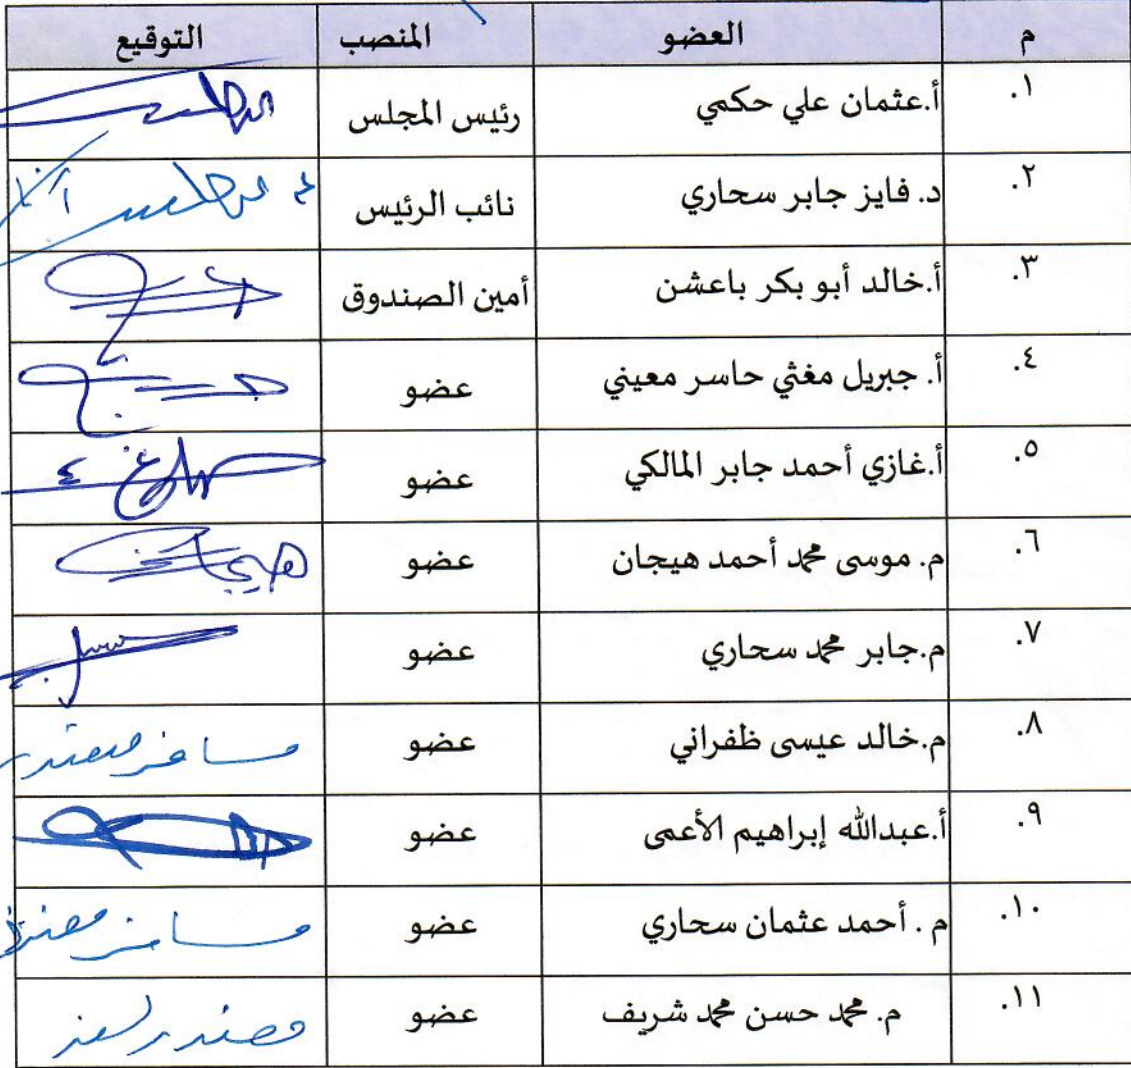 م العضو المنصب التوقيع
١. أ.عثمان علي حكمي رئيس المجلس
٢. د. فايز جابر سحاري نائب الرئيس
٣. أ.خالد أبو بكر باعشن أمين الصندوق
٤. أ. جبريل مغثي حاسر معيني عضو
٥. أ.غازي أحمد جابر المالكي عضو
٦. م. موسى محمد أحمد هيجان عضو
٧. م.جابر محمد سحاري عضو
٨. م.خالد عيسى ظفراني عضو مسافر معتذر
٩. أ.عبدالله إبراهيم الأعمى عضو
١٠. م . أحمد عثمان سحاري عضو مسافر معتذر
١١. م. محمد حسن محمد شريف عضو معتذر